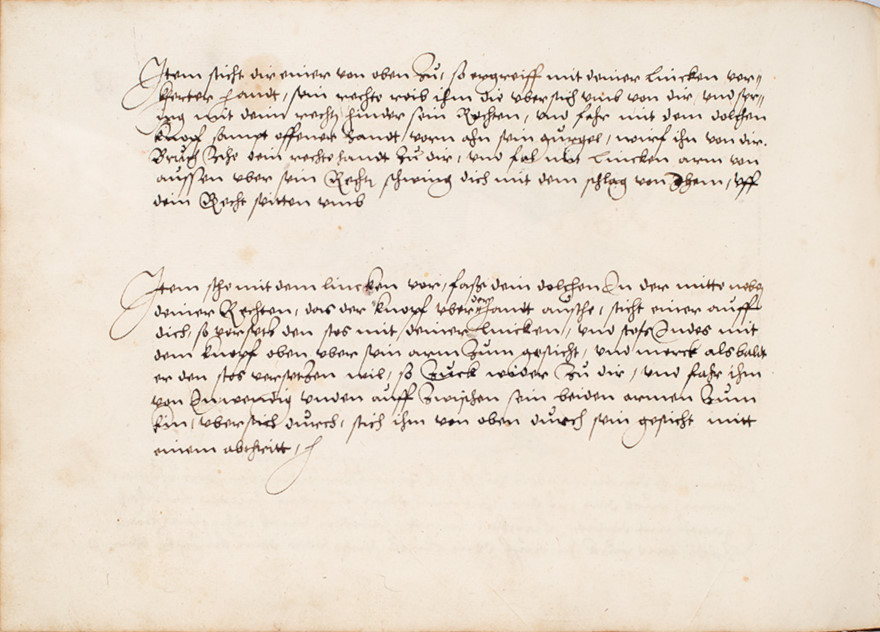 Item sticht dir einer von oben Zu, so ergreiff mit deiner lincken ver„
kerter handt, sein rechte reib ihm die vbersich vmb von dir, vnd spr„
ing mit deim recht hinder sein Rechten, vnd fahr mit dem dolchen
knopf sampt offener handt, vorn ahn sein gurgel, würf ihn von dir.
Bruch Zehe dein rechte handt Zu dir, vnd fal mit lincken arm von
aussen vber sein Recht schwing dich mit dem schlag von Ihem, vff
dein Recht seitten vmb
Item sthe mit dem lincken vor, fasse dein dolchen In der mitte neben
deiner Rechten, das der knopf vber der handt ausehe, sticht einer auff
dich, so versetz den stos mit deiner lincken, vnd stoss Indes mit
dem knopf oben vber sein arm Zum gesicht, vnd merck als baldt
er den stos versetzen wil, so Zuck wider Zu dir, vnd fahr ihm
von Inwendig vnden auff Zwischen sein beiden armen Zum
kin, vbersich durch, stich ihm von oben durch sein gesicht mitt
einem abthritt,